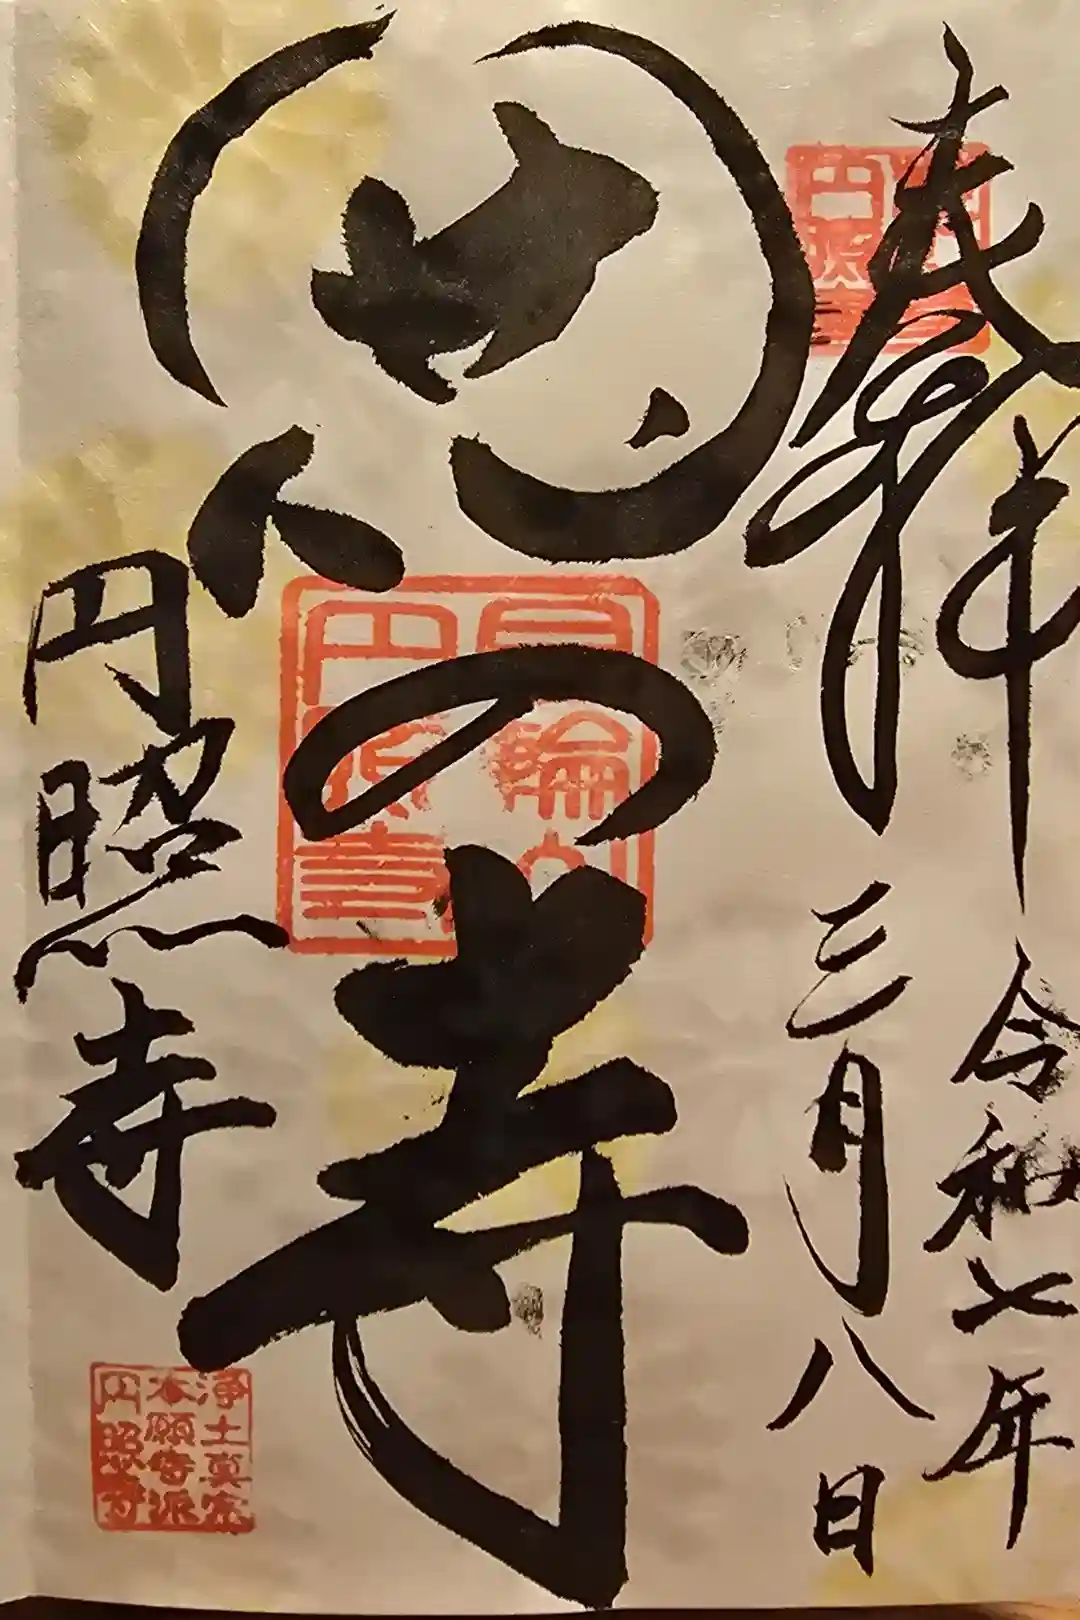 奉拝
令和七年
三月八日
の寺
円照寺
円照寺
浄土真宗
本願寺派
円照寺